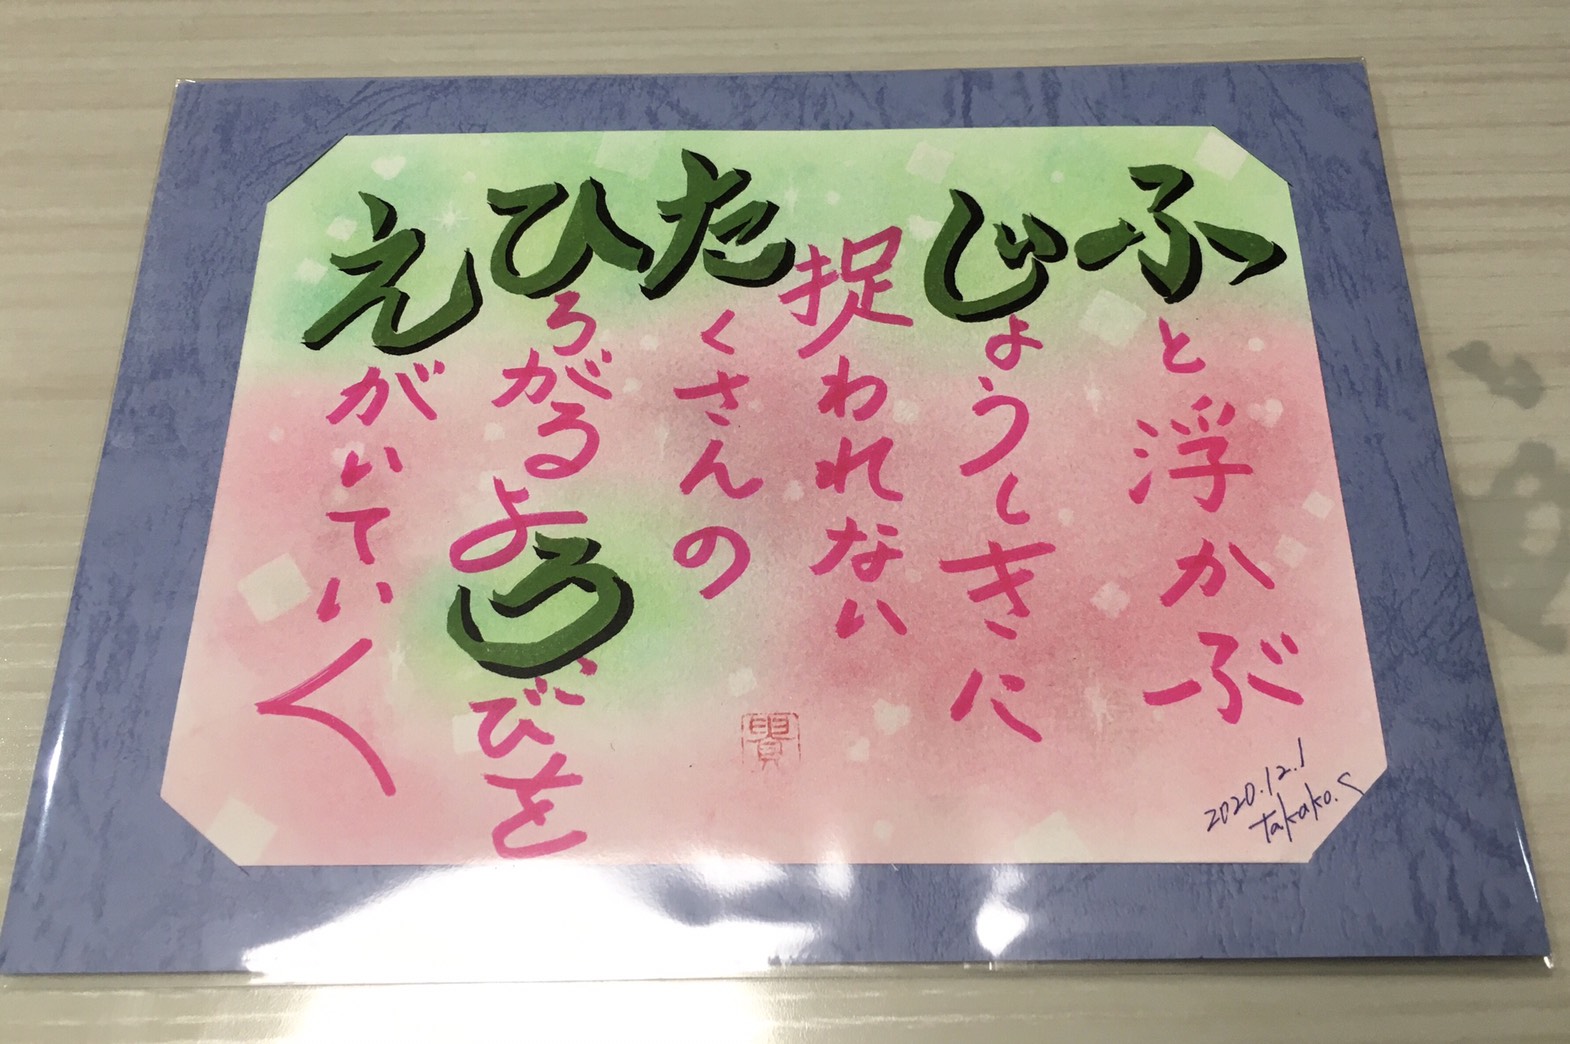 ふと浮かぶ
じょうしきに
捉われない
たくさんの
ひろがるよろこびを
えがいていく
2020.12.1
takako.S